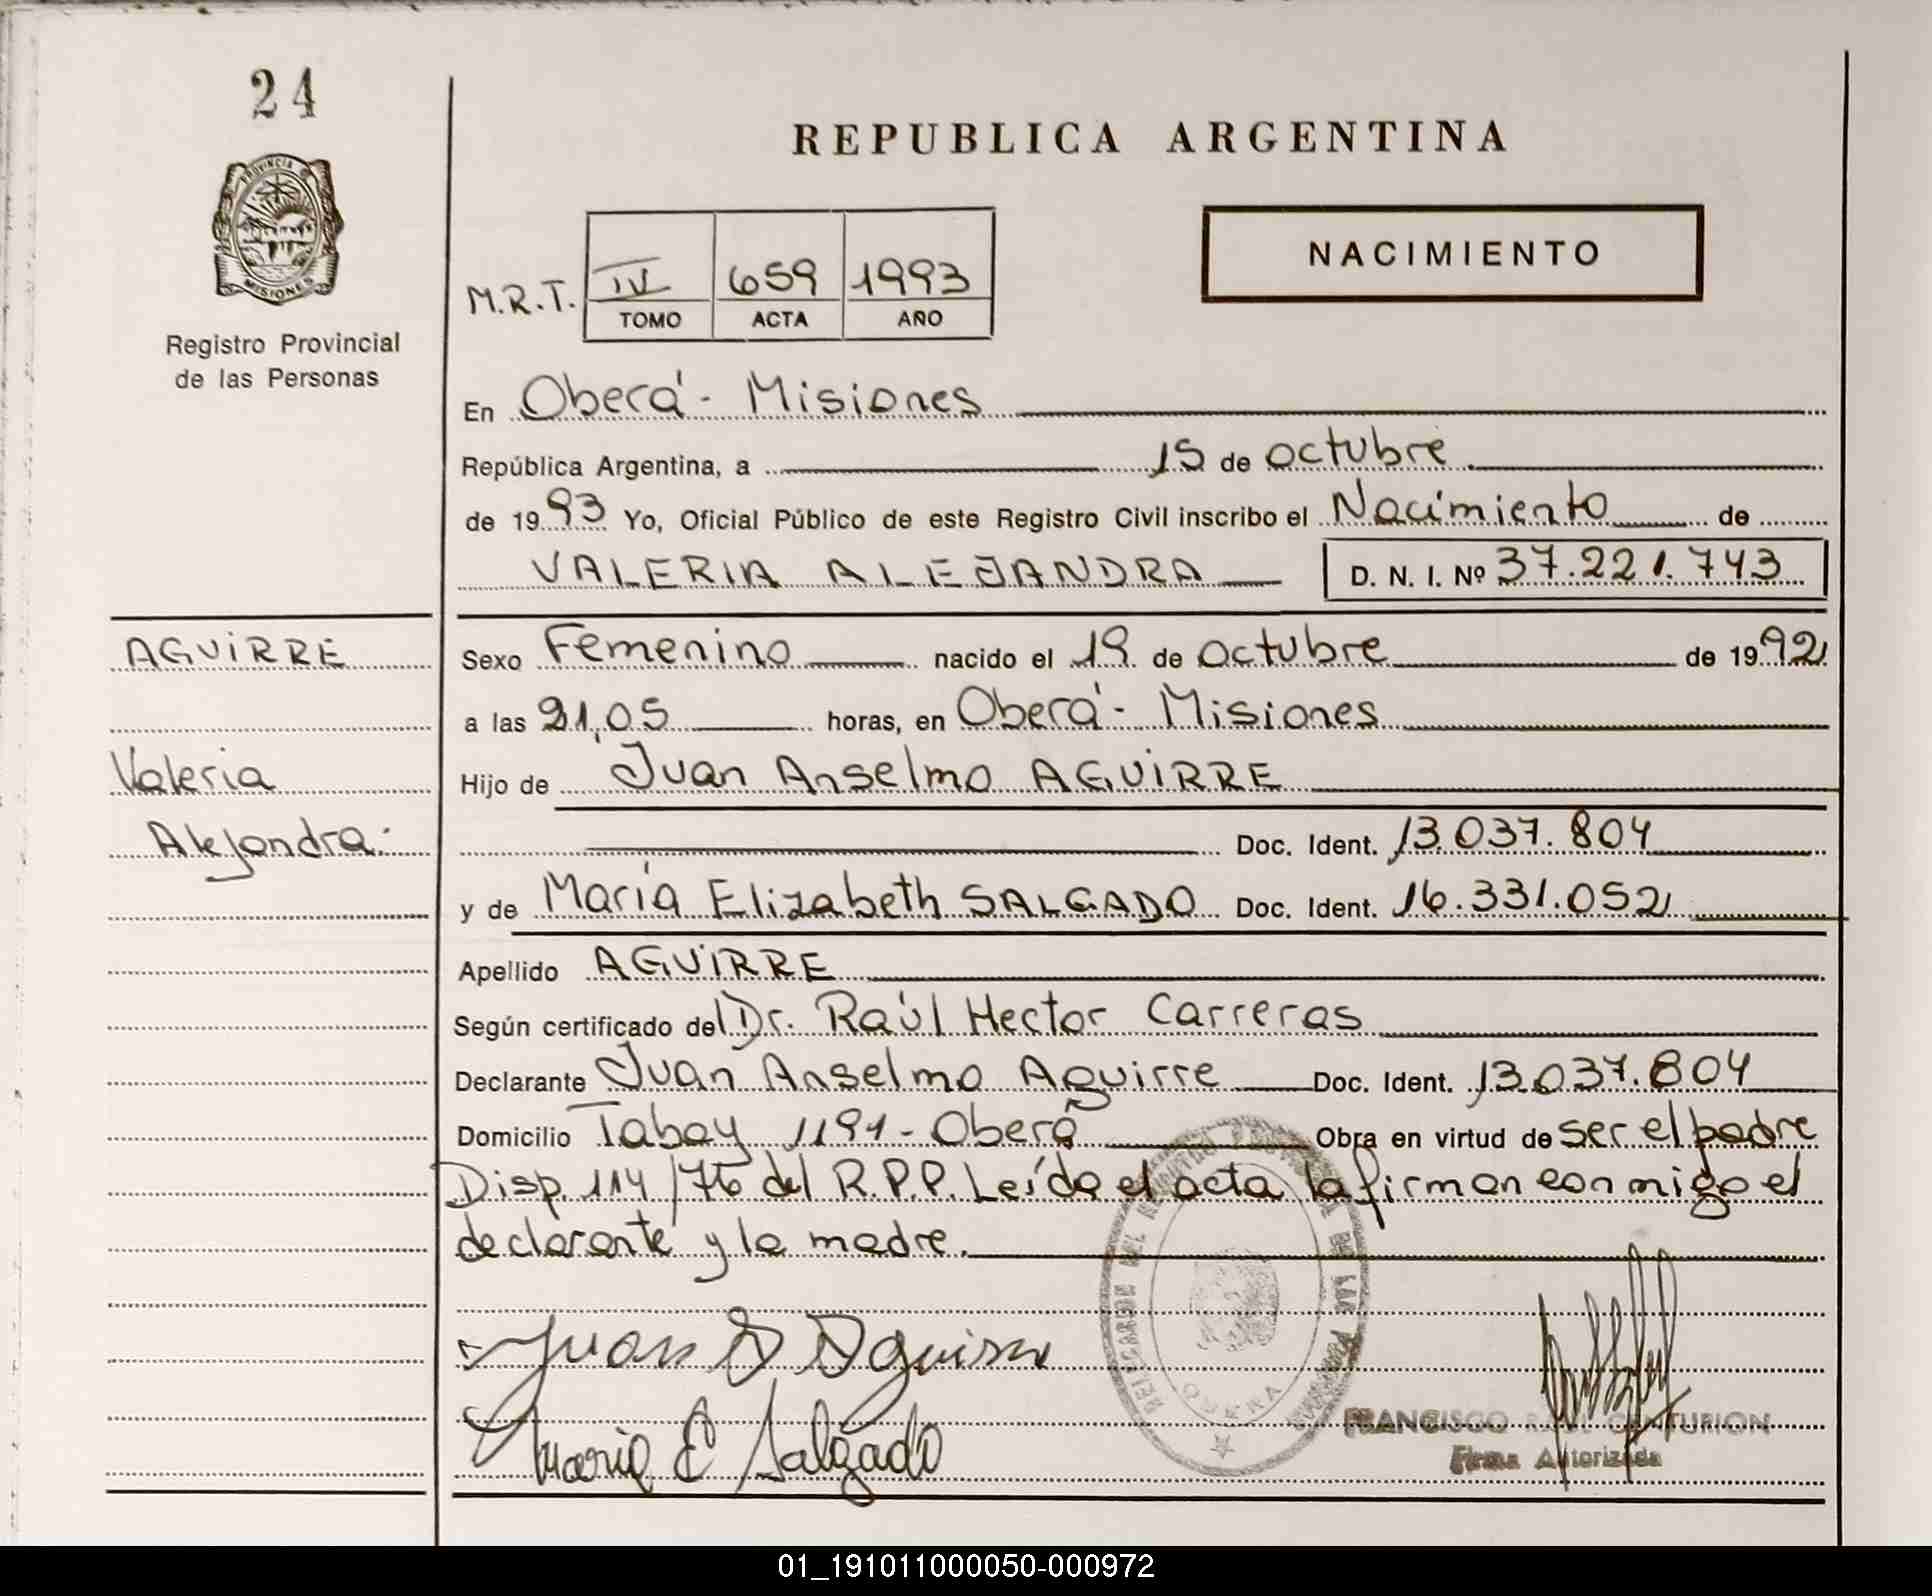 24
REPUBLICA ARGENTINA
PROVINCIA DE
MISIONES
NACIMIENTO
M.R.T. IV 659 1993
TOMO ACTA AÑO
Registro Provincial
de las Personas
En Oberá - Misiones
República Argentina, a 15 de octubre
de 1993 Yo, Oficial Público de este Registro Civil inscribo el Nacimiento de
VALERIA ALEJANDRA D. N. I. Nº 37.221.743
AGUIRRE
Sexo Femenino nacido el 19 de octubre de 1992
a las 21,05 horas, en Oberá - Misiones
Valeria
Hijo de Juan Anselmo AGUIRRE
Alejandra.
Doc. Ident. 13.037.804
y de María Elizabeth SALGADO Doc. Ident. 16.331.052
Apellido AGUIRRE
Según certificado del Dr. Raúl Hector Carreras
Declarante Juan Anselmo Aguirre Doc. Ident. 13.037.804
Domicilio Tabay 1191 - Oberá Obra en virtud de ser el padre
Disp. 114/76 del R.P.P. Leída el acta la firman conmigo el
declarante y la madre.
Juan A Aguirre
Maria E Salgado
DE LAS
OBERA
FRANCISCO CENTURION
Firma Autorizada
01_191011000050-000972